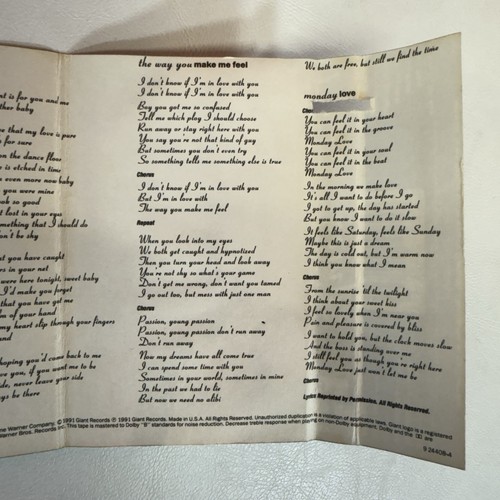 nt is for you and me
ther baby
re that my love is pure
s for sure
on the dance floor
e is etched in time
e even more now baby
you were mine
ook so good
et lost in your eyes
mething that I should do
on't be shy
at you have caught
ers in your net
were here tonight, sweet baby
I'd make you forget
that you have got me
lm of your hand
my heart slip through your fingers
and
hoping you'd come back to me
ve you, if you want me to be
ide, never leave your side
ays be there
the way you make me feel
I don't know if I'm in love with you
I don't know if I'm in love with you
Boy you got me so confused
Tell me which play I should choose
Run away or stay right here with you
You say you're not that kind of guy
But sometimes you don't even try
So something tells me something else is true
Chorus
I don't know if I'm in love with you
But I'm in love with
The way you make me feel
Repeat
When you look into my eyes
We both get caught and hypnotised
Then you turn your head and look away
You're not shy so what's your game
Don't get me wrong, don't want you tamed
I go out too, but mess with just one man
Chorus
Passion, young passion
Passion, young passion don't run away
Don't run away
Now my dreams have all come true
I can spend some time with you
Sometimes in your world, sometimes in mine
In the past we had to lie
But now we need no alibi
We both are free, but still we find the time
monday love
Cho
You can feel it in your heart
You can feel it in the groove
Monday Love
You can feel it in your soul
You can feel it in the beat
Monday Love
In the morning we make love
It's all I want to do before I go
I got to get up, the day has started
But you know I want to do it slow
It feels like Saturday, feels like Sunday
Maybe this is just a dream
The day is cold out, but I'm warm now
I think you know what I mean
Chorus
From the sunrise 'til the twilight
I think about your sweet kiss
I feel so lovely when I'm near you
Pain and pleasure is covered by bliss
I want to hold you, but the clock moves slow
And the boss is standing over me
I still feel you as though you're right here
Monday Love just won't let me be
Chorus
Lyrics Reprinted by Permission. All Rights Reserved.
me Warner Company. © 1991 Giant Records ℗ 1991 Giant Records. Made in U.S.A. All Rights Reserved. Unauthorized duplication is a violation of applicable laws. Giant logo is a registered
Warner Bros. Records Inc. This tape is mastered to Dolby "B" standards for noise reduction. Decrease treble response when playing on non-Dolby equipment. Dolby and the are
9 24409-4